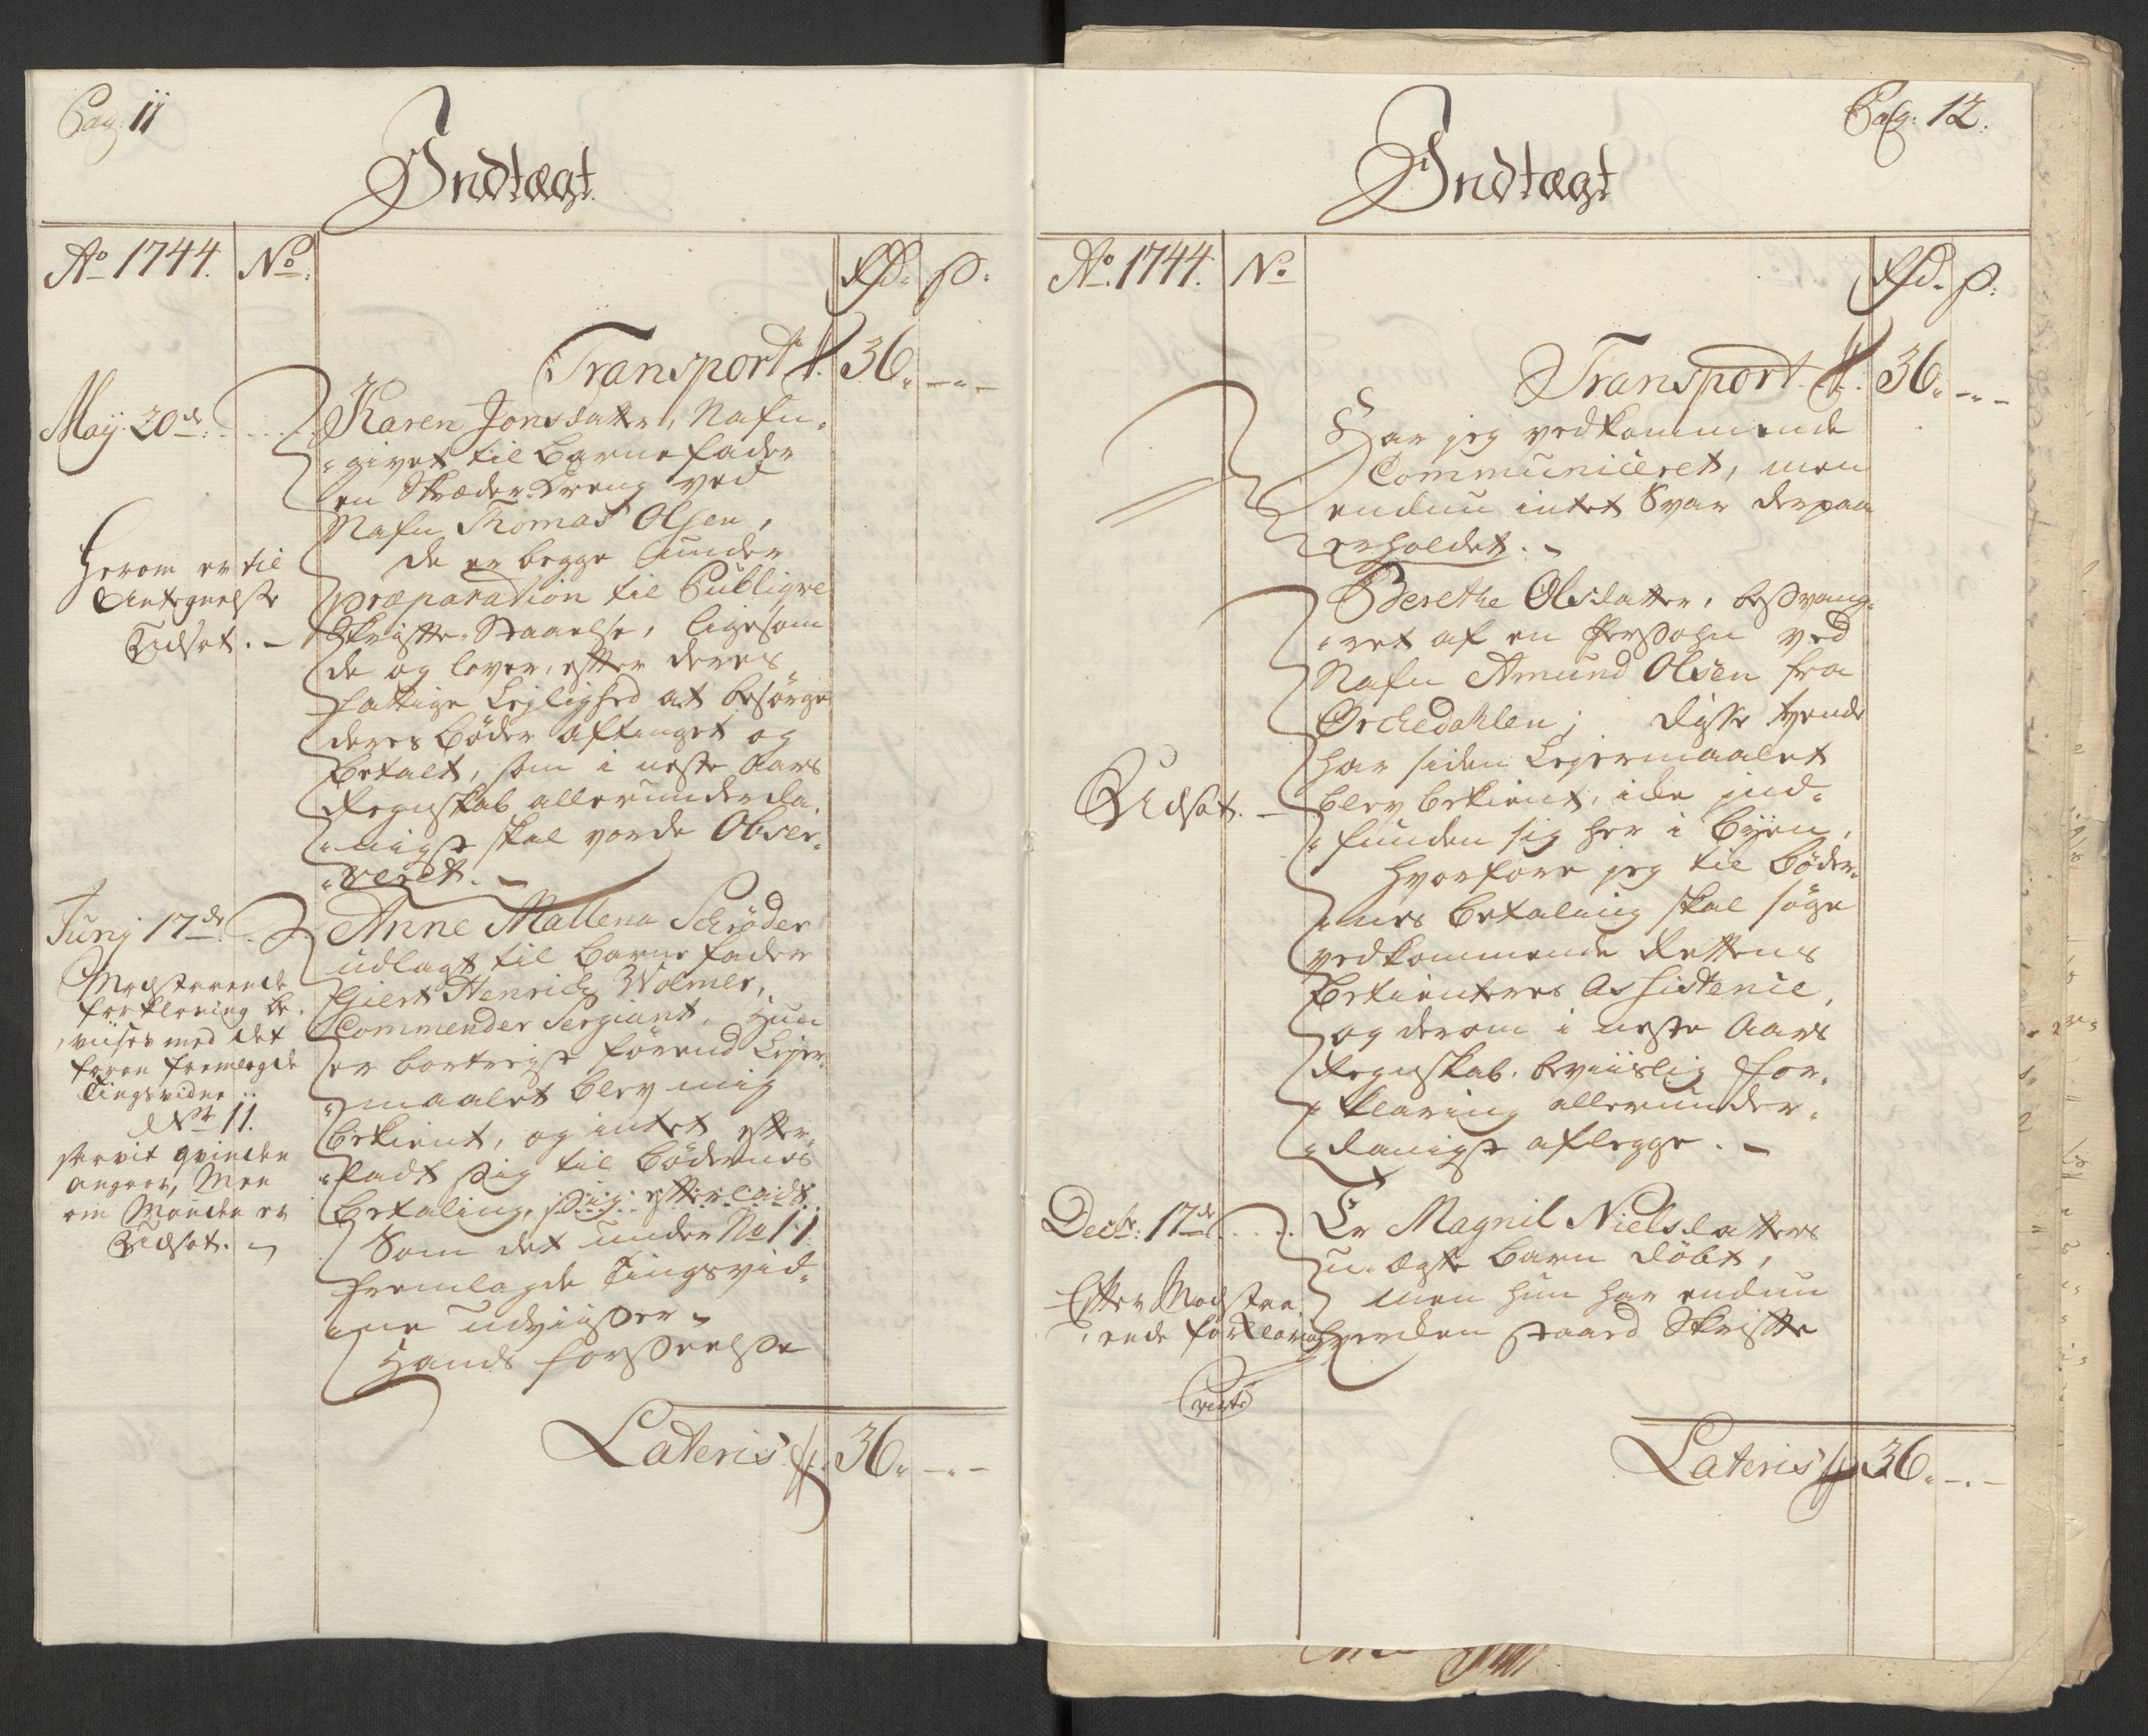 Pag: 11
Indtægt
Ao 1744. No: Rd. s:
Transport 36. - . -
Maij 20de: Karen Jonsdatter, Nafn-
givet til Barnefader
en Skræder dreng ved
Nafn Thomas Olsen,
de er begge under
Præparation til Publiqve
Skrifte Staaelse, ligesom
de og lover, efter deres
fattige Leylighed at besørge
deres Bøder aftinget og
betalt, som i neste Aars
Regnskab allerunderda-
nigst skal vorde Obser-
veret. -
Herom er til
Antegnelse
Udsat. -
Junij 17de: Anne Mallena Schrøder
udlagt til Barnefader
Giert Henrich Wolmer,
Commender Sergiant, Hun
er bortreyst førend Leyer-
maalet blev mig
bekient, og intet efter-
ladt sig til Bødernes
Betaling, sig efterladt.
Som det under No 11
fremlagde Tingsvid-
ne udviiser
Hands forseelse
Modstaaende
forklaring be-
viises med det
foran fremlagde
Tingsvidne
No 11.
saavit qvinden
angaar, Men
om Manden er
Udsat.
Lateris 36. - . -
Pag: 12.
Indtægt
Ao. 1744. No Rd. s:
Transport. 36. - . -
Har jeg vedkommende
Communiceret, men
endnu intet Svar derpaa
erholdet. -
Berethe Olsdatter, besvang-
ret af en Persohn ved
Nafn Amund Olsen fra
Orchedahlen; disse tvende
har siden Leyermaalet
blev bekient, icke ind-
funden sig her i Byen,
hvorfore jeg til Bøder-
nes Betaling skal søge
vedkommende Rettens
Betienteres Assistence,
og derom i neste Aars
Regnskab, beviislig for-
klaring allerunder-
danigst aflegge. -
Udsat. -
Decbr: 17de Er Magnil Nielsdatters
u-ægte Barn døbt,
men hun har endnu
hverken staaed Skrifte
Efter Modstaa-
ende forklaring
Lateris 36. - . -